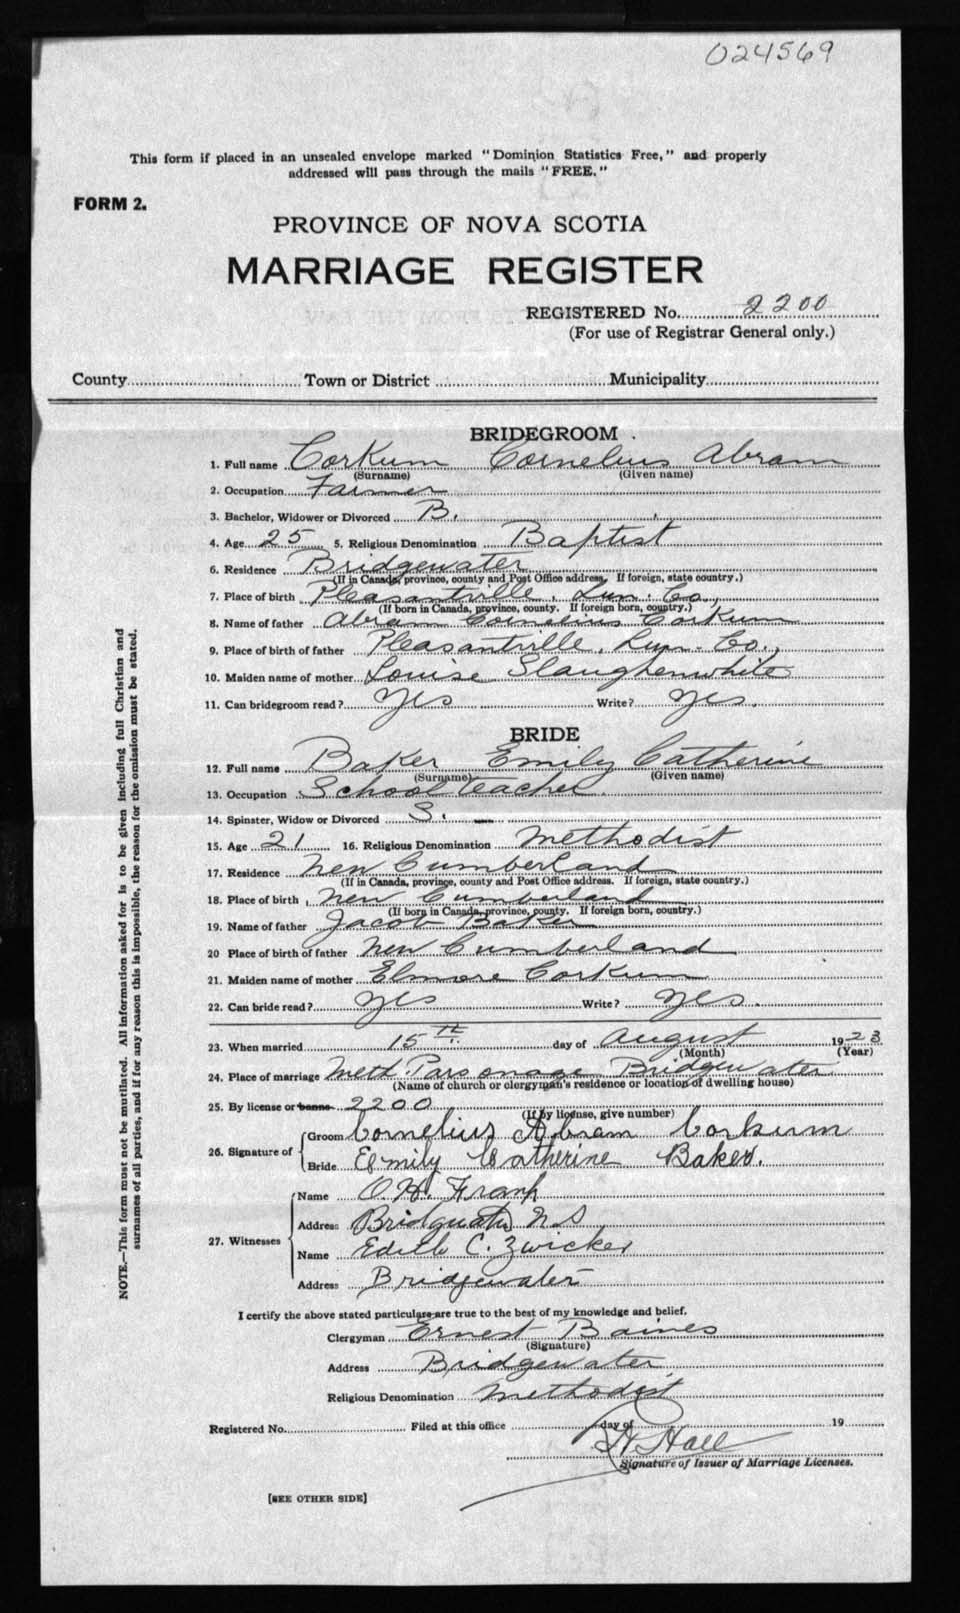 024569
This form if placed in an unsealed envelope marked "Dominion Statistics Free," and properly
addressed will pass through the mails "FREE."
FORM 2.
PROVINCE OF NOVA SCOTIA
MARRIAGE REGISTER
REGISTERED No. 2200
(For use of Registrar General only.)
County Town or District Municipality
BRIDEGROOM
1. Full name Corkum Cornelius Abram
(Surname) (Given name)
2. Occupation Farmer
3. Bachelor, Widower or Divorced B.
4. Age 25 5. Religious Denomination Baptist
6. Residence Bridgewater
(If in Canada, province, county and Post Office address. If foreign, state country.)
7. Place of birth Pleasantville, Lun. Co.,
(If born in Canada, province, county. If foreign born, country.)
8. Name of father Abram Cornelius Corkum
9. Place of birth of father Pleasantville, Lun. Co.,
10. Maiden name of mother Louise Slaughenwhite
11. Can bridegroom read? Yes Write? Yes.
BRIDE
12. Full name Baker Emily Catherine
(Surname) (Given name)
13. Occupation School teacher
14. Spinster, Widow or Divorced S.
15. Age 21 16. Religious Denomination Methodist
17. Residence New Cumberland
(If in Canada, province, county and Post Office address. If foreign, state country.)
18. Place of birth New Cumberland
(If born in Canada, province, county. If foreign born, country.)
19. Name of father Jacob Baker
20 Place of birth of father New Cumberland
21. Maiden name of mother Elmore Corkum
22. Can bride read? Yes Write? Yes.
23. When married 15th day of August 1923
(Month) (Year)
24. Place of marriage Meth. Parsonage Bridgewater
(Name of church or clergyman's residence or location of dwelling house)
25. By license or banns 2200
(If by license, give number)
26. Signature of Groom Cornelius Abram Corkum
Bride Emily Catherine Baker.
27. Witnesses Name O. H. Frank
Address Bridgewater N S
Name Edith C. Zwicker
Address Bridgewater
I certify the above stated particulars are true to the best of my knowledge and belief.
Clergyman Ernest Baines
(Signature)
Address Bridgewater
Religious Denomination Methodist
Registered No. Filed at this office day of 19
Hall
Signature of Issuer of Marriage Licenses.
[SEE OTHER SIDE]
NOTE.—This form must not be mutilated. All information asked for is to be given including full Christian and
surnames of all parties, and if for any reason this is impossible, the reason for the omission must be stated.